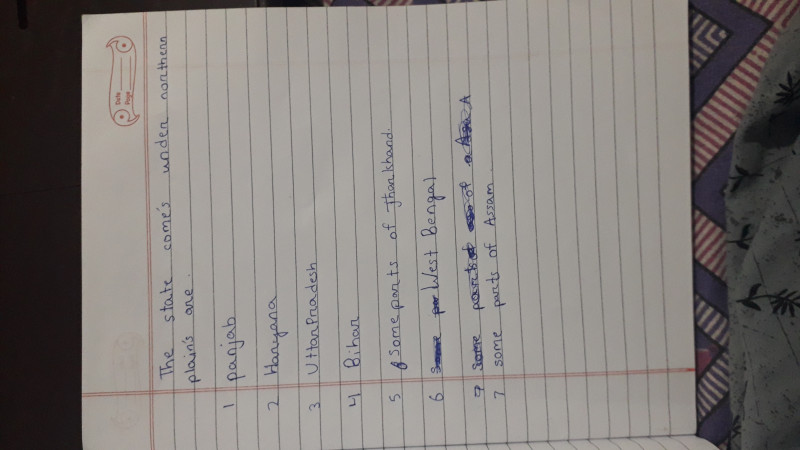 Date
Page
The state come's under northern
plain's are.
1 panjab
2 Haryana
3 Uttar Pradesh
4 Bihar
5 some parts of Jharkhand.
6 West Bengal
7 some parts of Assam.